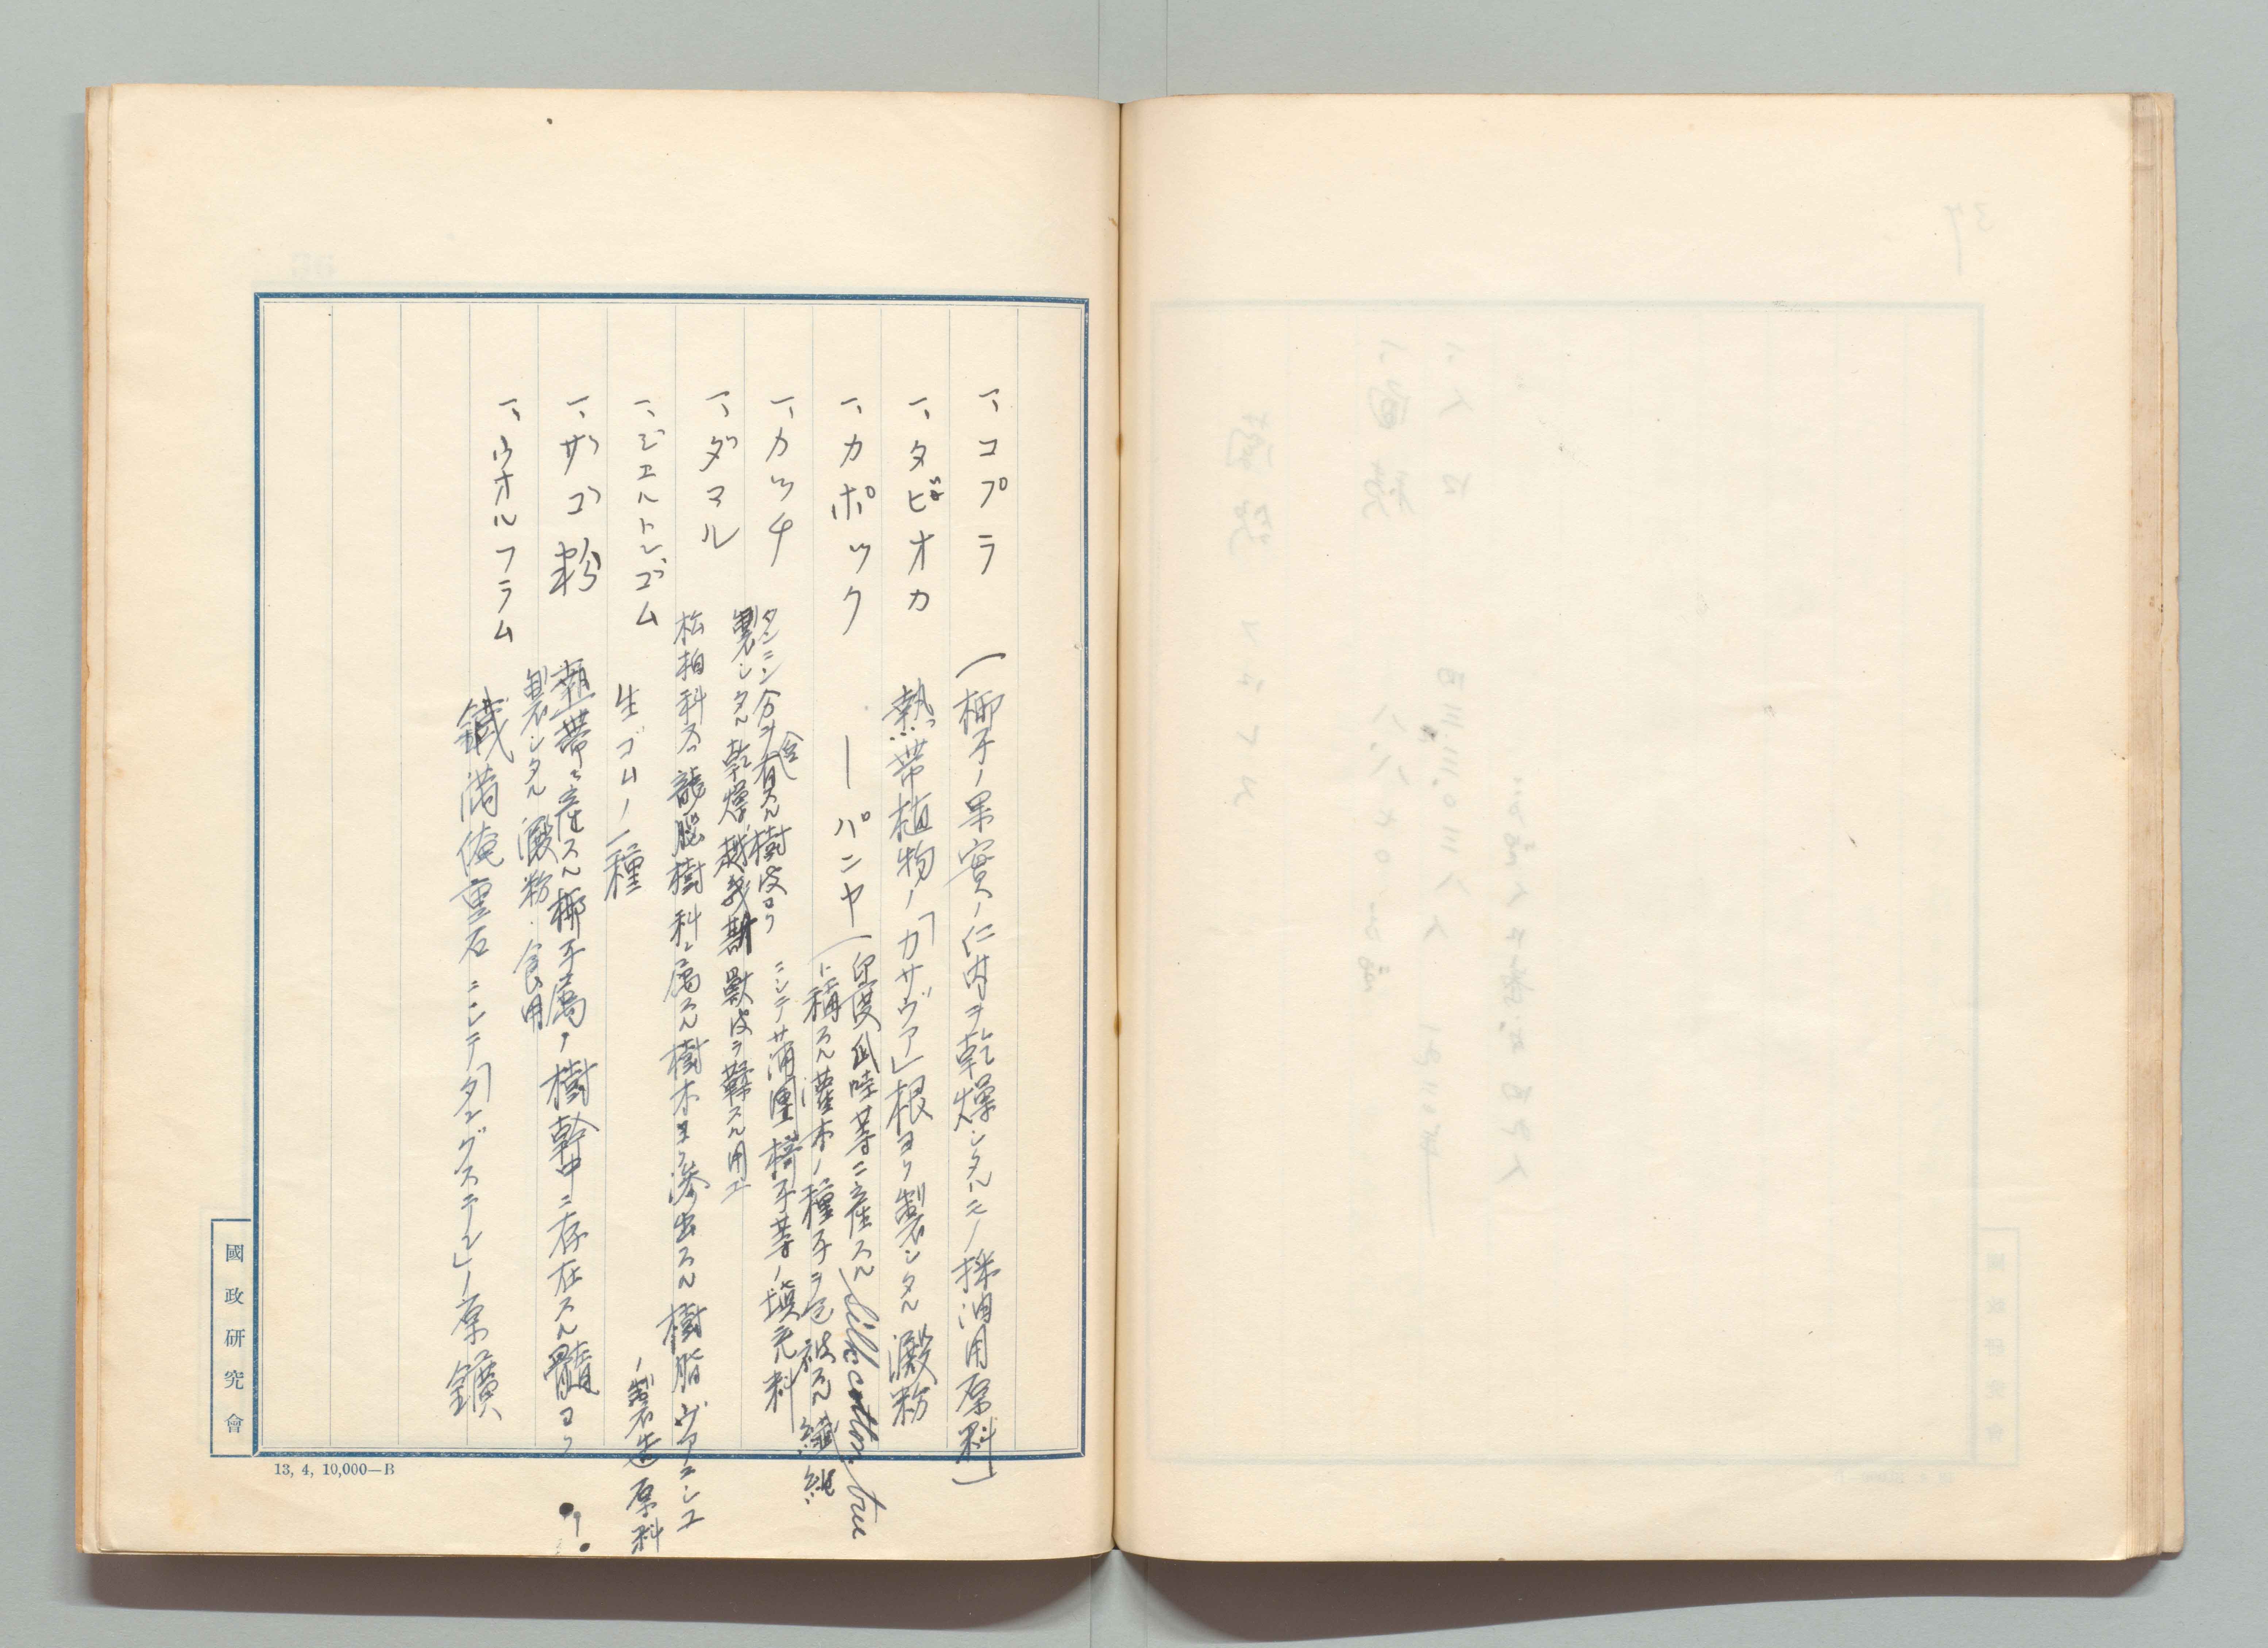 一、コプラ (椰子ノ果実ノ仁肉ヲ乾燥シタルモノ 採油用原料)
一、タピオカ 熱帯植物ノ「カサヴア」根ヨリ製シタル澱粉
一、カポック ーパンヤ(印度爪哇等ニ産スル Silk cotton tree
ト稱スル灌木ノ種子ヲ包被スル繊維
ニシテ蒲團椅子等ノ填充料
一、カッチ タンニン分ヲ含有スル樹皮ヨリ
製シタル乾燥越幾斯 獸皮ヲ鞣スル用ニ
一、ダマル
松柏科及龍脳樹科ニ属スル樹木ヨリ滲出スル樹脂 ヴアニシユ
ノ製造原料
一、ジエルトンゴム 生ゴムノ一種
一、サゴ粉 熱帯ニ産スル椰子属ノ樹幹中ニ存在スル髓ヨリ
製シタル澱粉・食用
一、ウオルフラム 鐵満俺重石ニシテ「タングステン」ノ原鑛
國政研究會
13, 4, 10,000—B